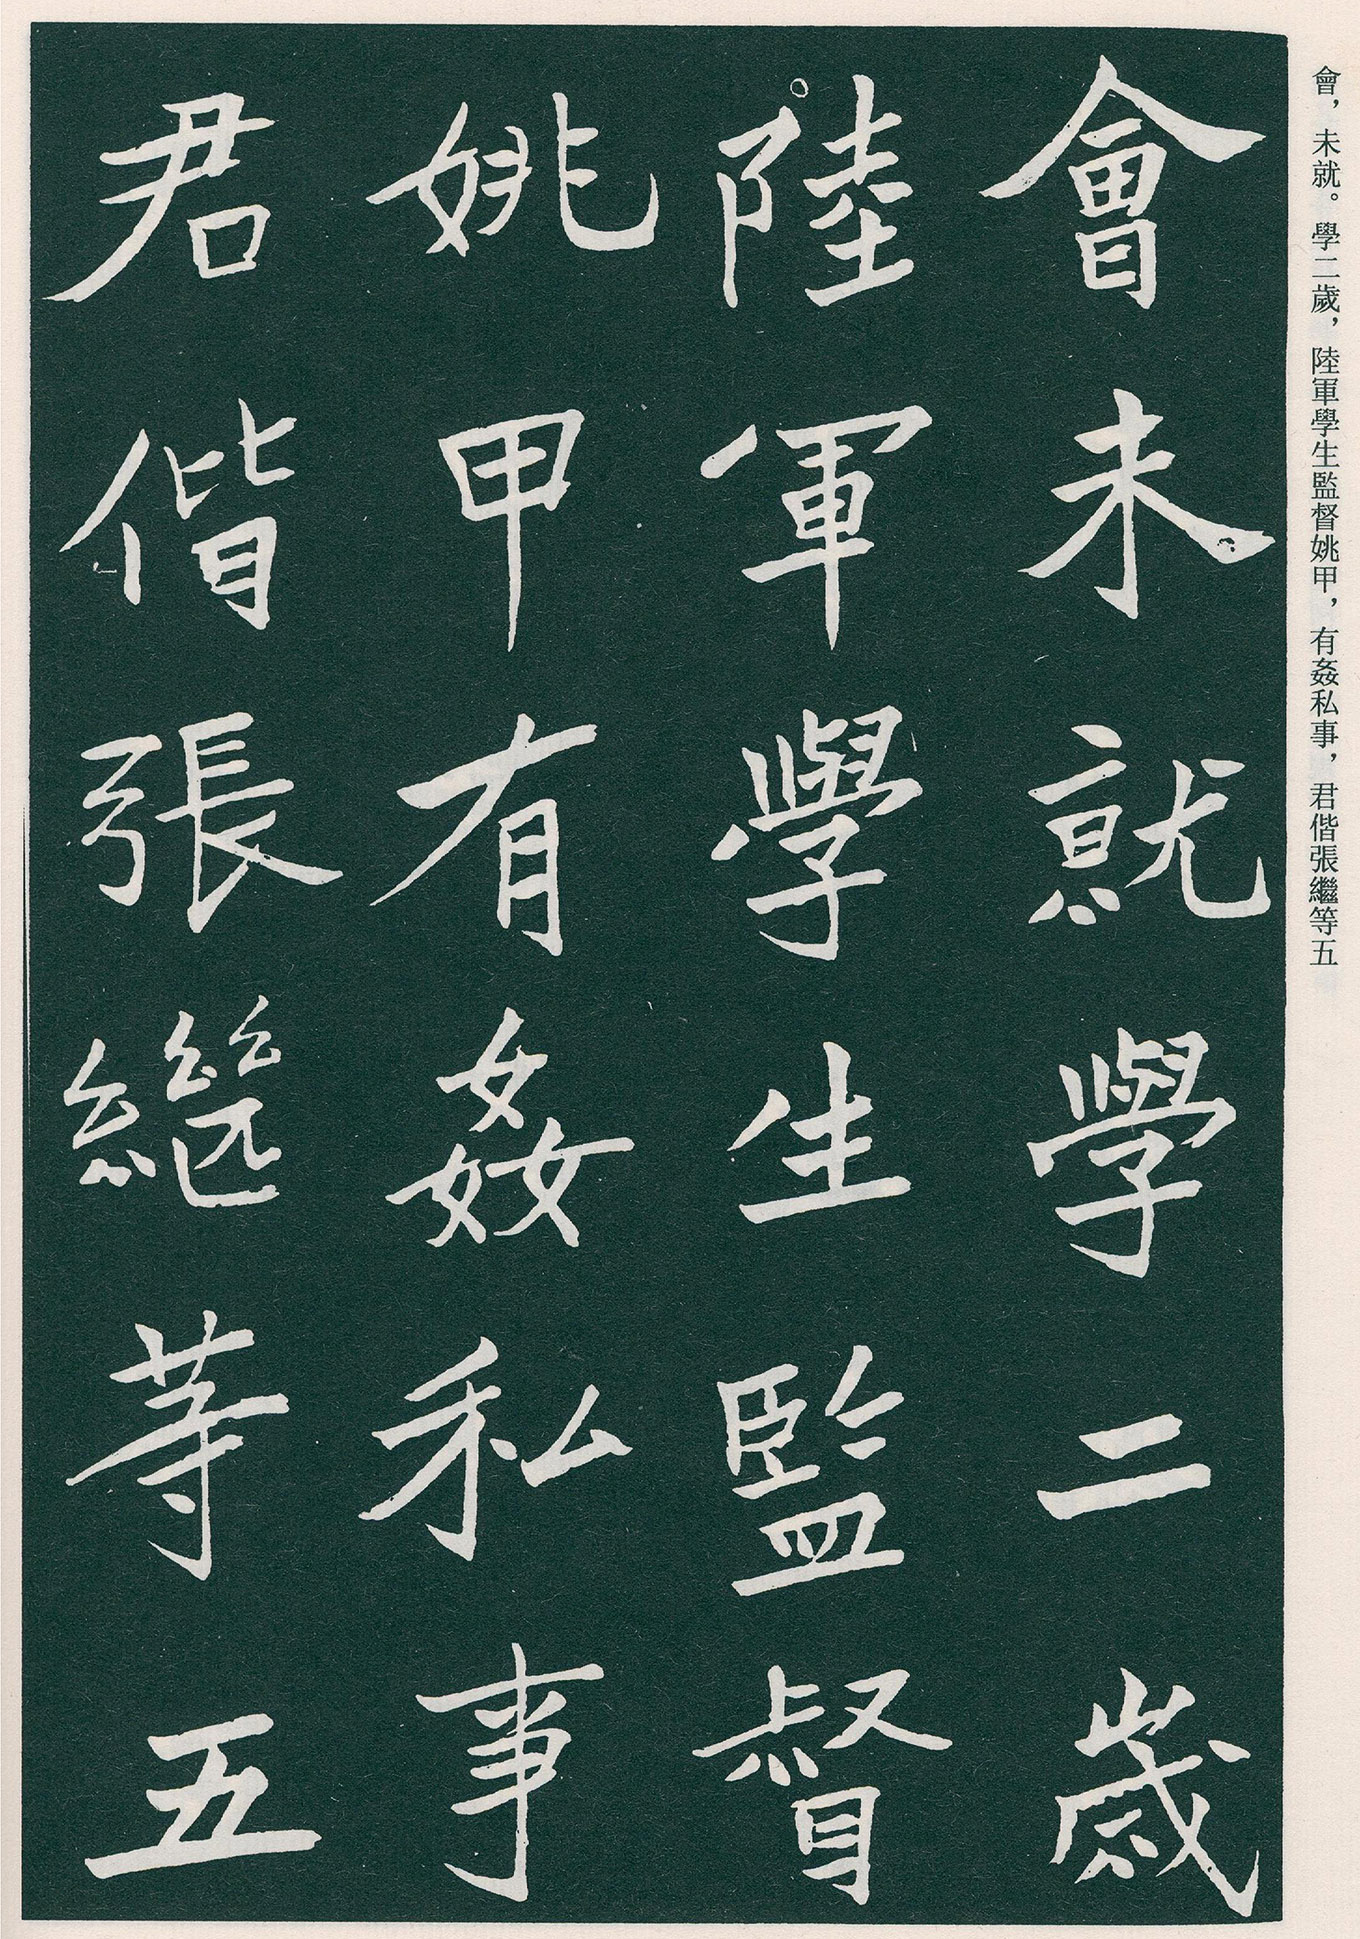 會未就學二歲
陸軍學生監督
姚甲有姦私事
君偕張繼等五
會，未就。學二歲，陸軍學生監督姚甲，有姦私事，君偕張繼等五